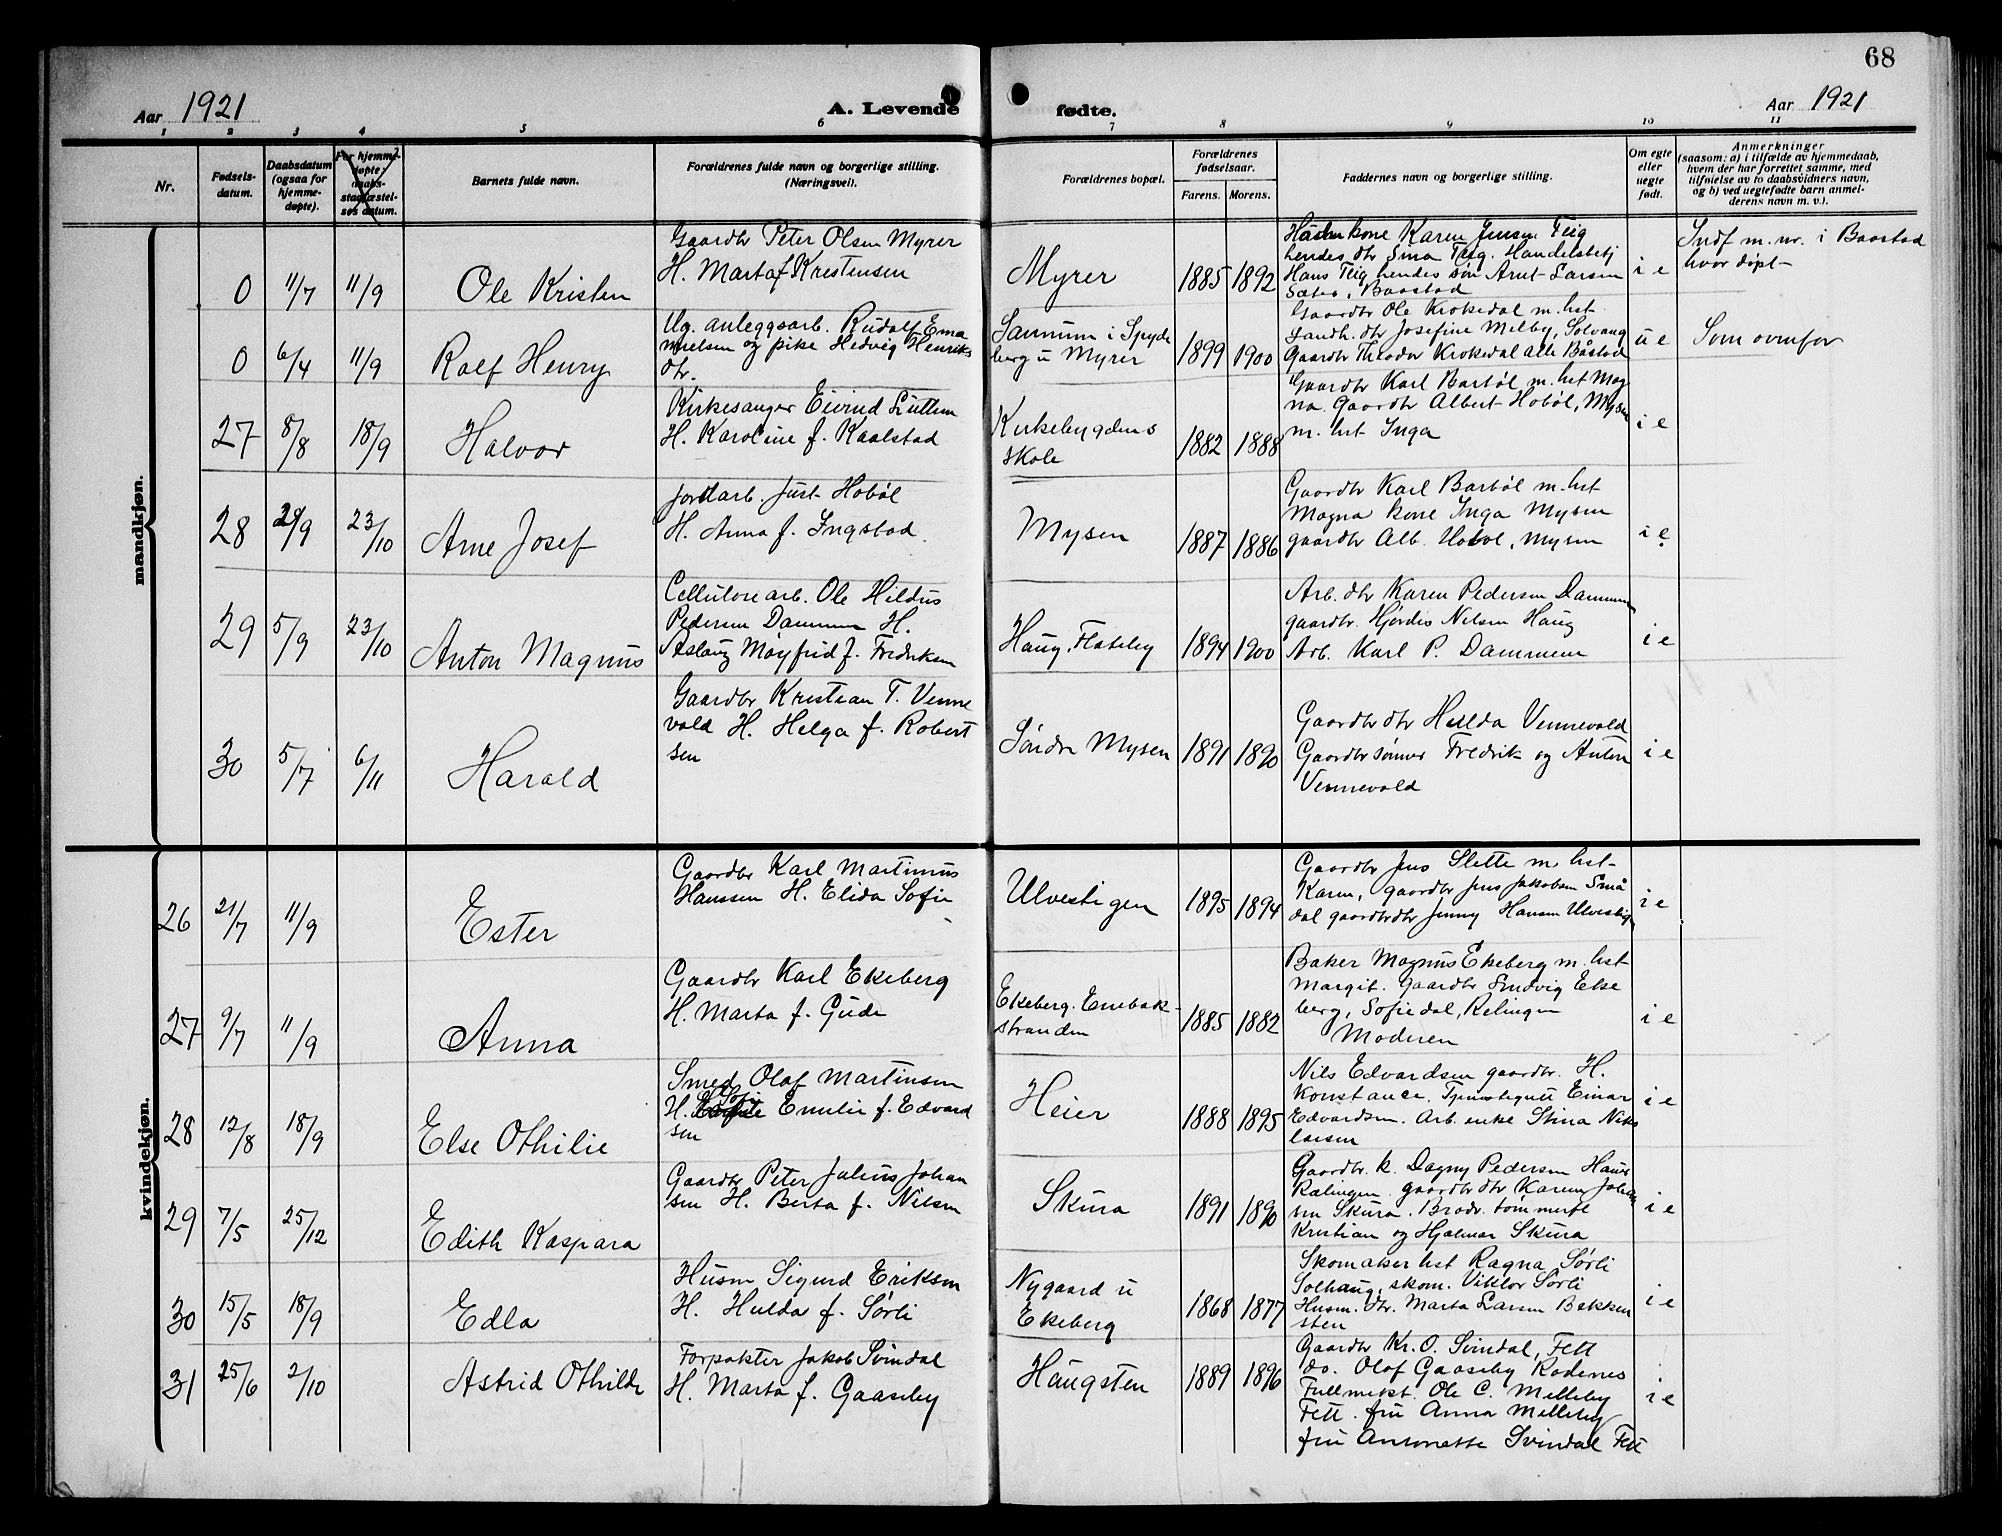 68
Aar 1921
A. Levende
fødte.
Aar 1921
1 2 3 4 5 6 7 8 9 10 11
Nr.
Fødsels-
datum.
Daabsdatum
(ogsaa for
hjemme-
døpte).
For hjemme-
døpte:
daabs-
stadfæstel-
ses datum.
Barnets fulde navn.
Forældrenes fulde navn og borgerlige stilling.
(Næringsvei).
Forældrenes bopæl.
Forældrenes
fødselsaar.
Farens. Morens.
Faddernes navn og borgerlige stilling.
Om egte
eller
uegte
født.
Anmerkninger
(saasom: a) i tilfælde av hjemmedaab,
hvem der har forrettet samme, med
tilføielse av to daabsvidners navn,
og b) ved uegtefødte barn anmel-
derens navn m. v.).
mandkjøn.
0 11/7 11/9 Ole Kristen
Gaardbr Peter Olsen Myrer
H. Marta f Kristensen
Myrer 1885 1892
kone Karen Jensen Teig
hendes dtr Sina Teig. Handelsbetj
Hans Teig hendes søn Arnt Larsen
Sæter, Baastad
i e
Indf m. nr. i Baastad
hvor døpt
0 6/4 11/9 Rolf Henry
Ug. anleggsarb. Rudolf Ema
nuelsen og pike Hedvig Henriks
dtr.
i Spyde
berg u Myrer
1899 1900
Gaardbr Ole Krokedal m. hst
Landh. dtr Josefine Melby, Solvang
Gaardbr Theodor Krokedal Alle Båstad
u e
Som ovenfor
27 8/8 18/9 Halvor
Kirkesanger Eivind Luttem
H. Karoline f. Kaalstad
Kirkebygdens
skole
1882 1888
Gaardbr Karl Barbøl m. hst Mag
na. Gaardbr Albert Hobøl, Mysen
m. hst Inga
i e
28 29/9 23/10 Arne Josef
Jordarb. Just Hobøl
H. Anna f. Ingstad.
Mysen 1887 1886
Gaardbr Karl Barbøl m. hst
Magna kone Inga Mysen
gaardbr Alb. Hobøl, Mysen
i e
29 5/9 23/10 Anton Magnus
Cellulose arb. Ole Hildus
Pedersen Dammen H.
Aslaug Møyfrid f. Fredriksen
Haug, Flateby 1894 1900
Arb. dtr Karen Pedersen Dammen
gaardbr. Hjørdis Nilsen Haug
Arb. Karl P. Dammen
i e
30 5/7 6/11 Harald
Gaardbr Kristian T. Venne
vold H. Helga f. Robert
sen
Søndre Mysen 1891 1890
Gaardbr dtr Hulda Vennevold
Gaardbr sønner Fredrik og Anton
Vennevold
i e
kvindekjøn.
26 21/7 11/9 Ester
Gaardbr Karl Martinius
Hanssen H. Elida Sofie
Ulvestigen 1895 1894
Gaardbr Jens Slette m hst
Karen, gaardbr Jens Jakobsen Små
dal gaardbrdtr Jenny Hansen Ulvestig
i e
27 9/7 11/9 Anna
Gaardbr Karl Ekeberg
H. Marta f. Gude
Ekeberg. Enebak
stranden
1885 1882
Baker Magnus Ekeberg m. hst
Margit. Gaardbr Ludvig Eke
berg, Sofiedal, Relingen
Moderen
i e
28 12/8 18/9 Else Othilie
Smed Olaf Martinsen
H. Emilie f. Edvard
sen
Heier 1888 1895
Nils Edvardsen gaardbr. H.
Konstance, Einar
Edvardsen. Arb. enke Stina Nik
larsen
i e
29 7/5 25/12 Edith Kaspara
Gaardbr Peter Julius Johan
sen H. Berta f. Nilsen
Skura 1891 1890
Gaardbr. k. Dagny Pedersen Haug
Rælingen. gaardbr dtr Karen Johan
sen Skura. Brødr. tømmerfl
Kristian og Hjalmar Skura
i e
30 15/5 18/9 Edla
Husm Sigurd Eriksen
H. Hulda f. Sørli
Nygaard u
Ekeberg
1868 1877
Skomaker hst Ragna Sørli
Solhaug, skom. Viktor Sørli
Husm. dtr. Marta Larsen Bekken
sten
i e
31 25/6 2/10 Astrid Othilde
Forpakter Jakob Svindal
H. Marta f. Gaaseby
Haugsten 1889 1896
Gaardbr Kr. O. Svindal, Fett
do. Olaf Gaaseby Rødenes
Fullmekt. Ole C. Melleby
Fett. fru Anna Melleby
fru Antonette Svindal Fett
i e